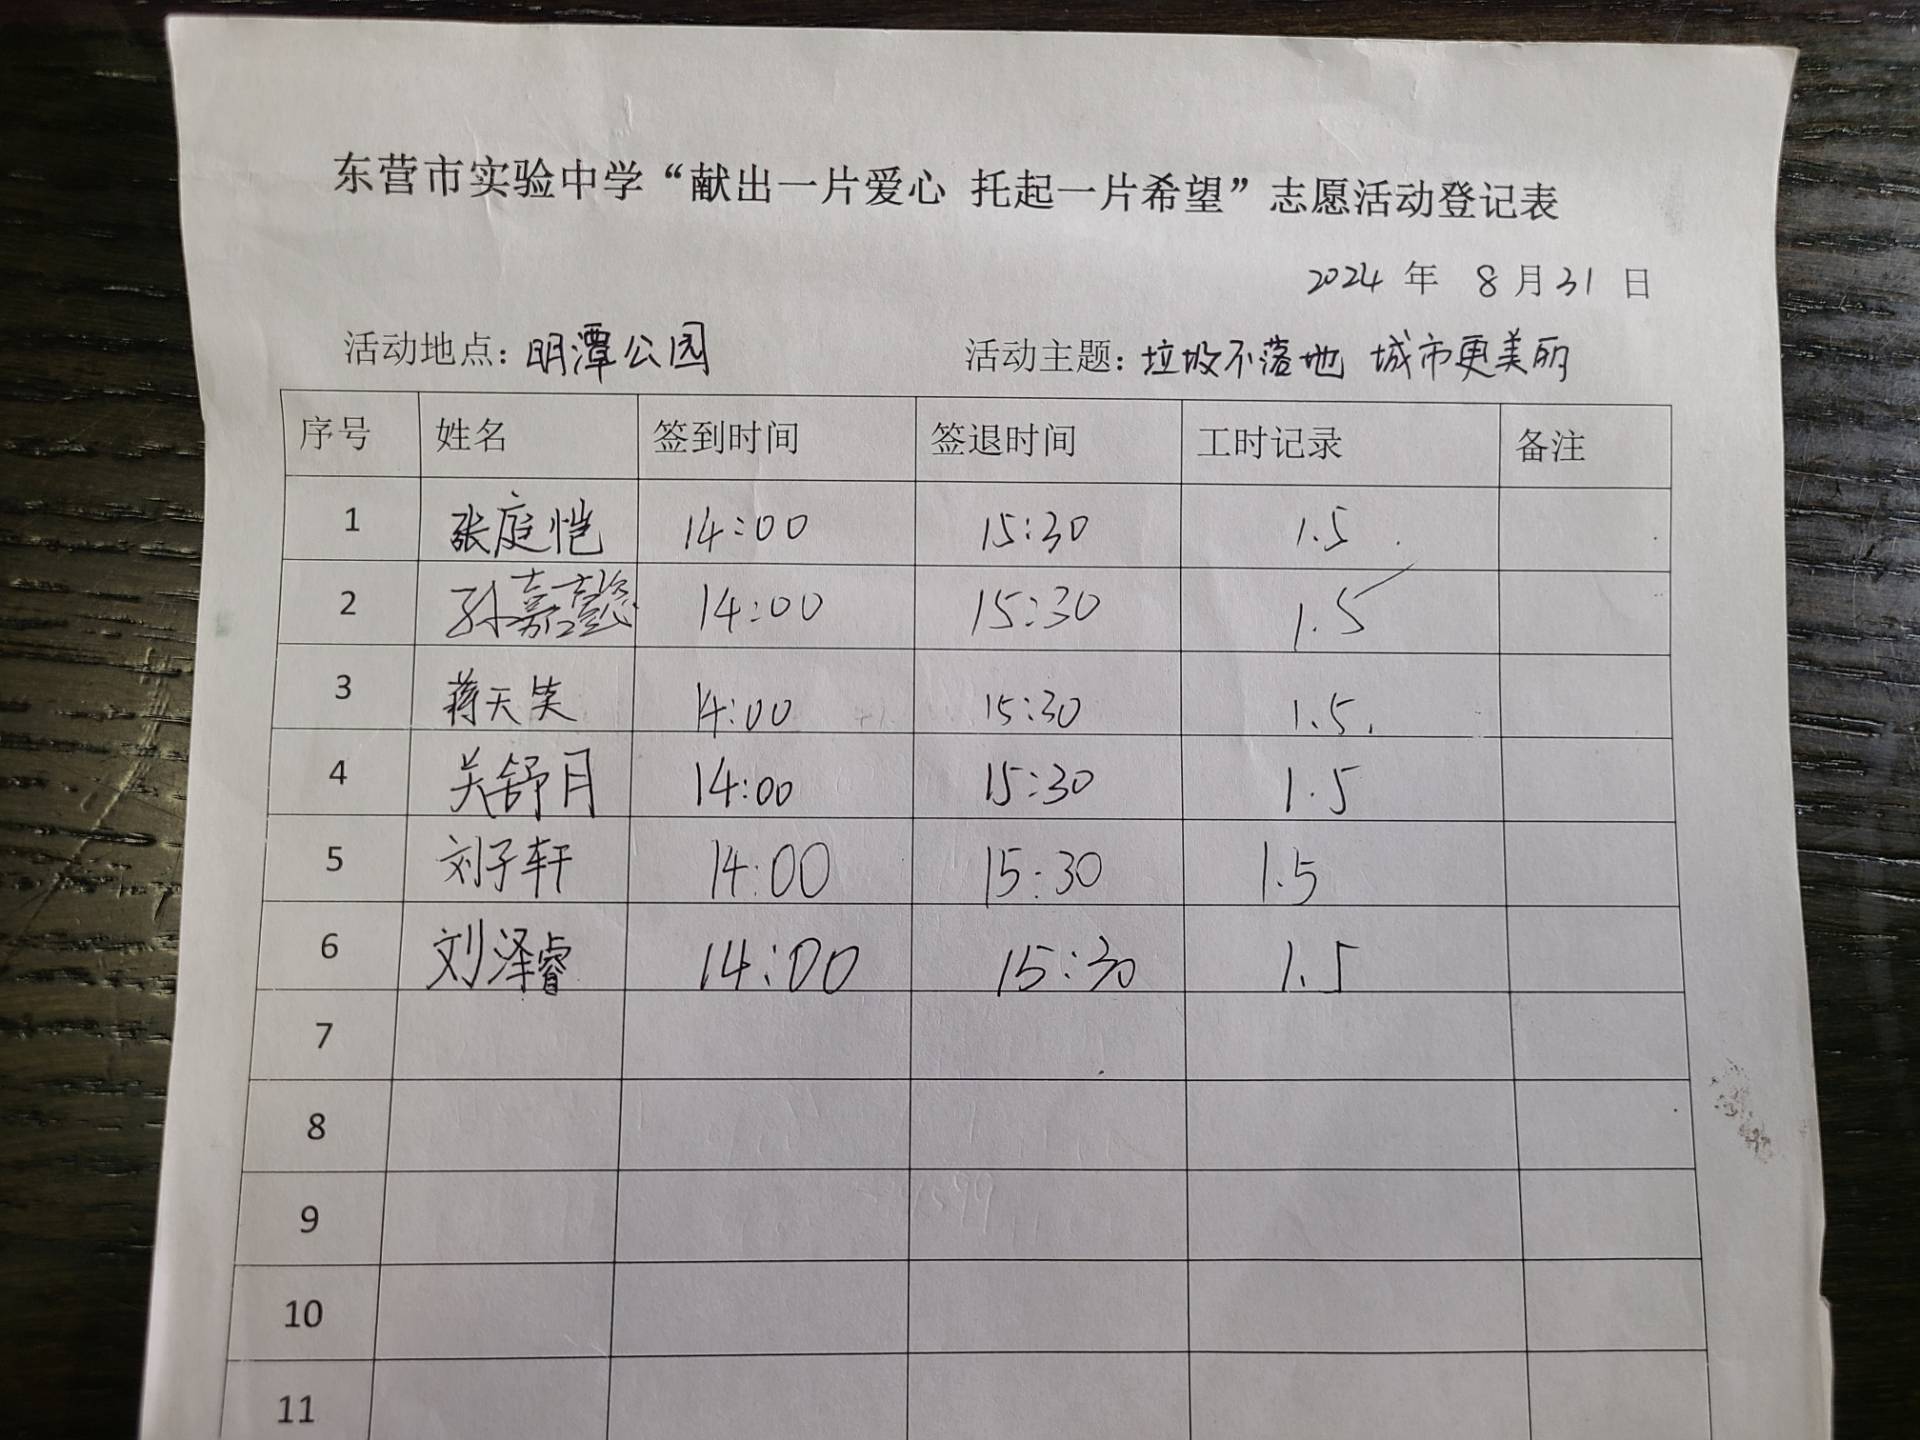 东营市实验中学“献出一片爱心 托起一片希望”志愿活动登记表
2024 年 8 月 31 日
活动地点：明潭公园 活动主题：垃圾不落地 城市更美丽
序号 姓名 签到时间 签退时间 工时记录 备注
1 张庭恺 14:00 15:30 1.5
2 孙嘉懿 14:00 15:30 1.5
3 蒋天笑 14:00 15:30 1.5
4 关舒月 14:00 15:30 1.5
5 刘子轩 14:00 15:30 1.5
6 刘泽睿 14:00 15:30 1.5
7
8
9
10
11